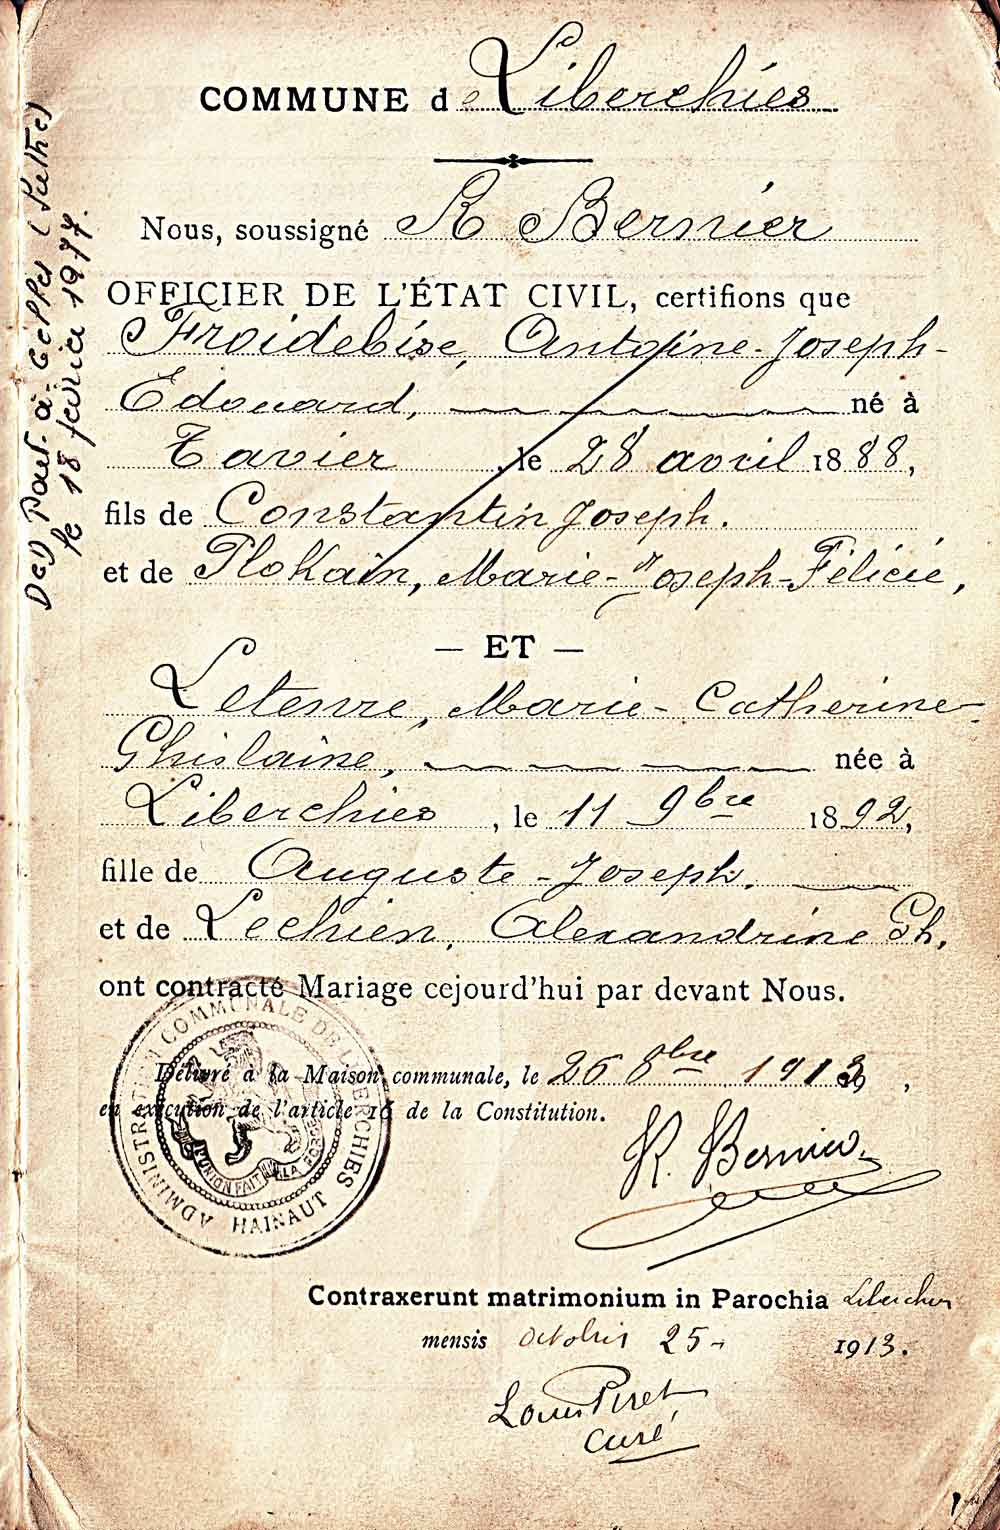 COMMUNE de Liberchies
Nous, soussigné R Bernier
OFFICIER DE L'ÉTAT CIVIL, certifions que
Froidebise, Antoine-Joseph-
Edouard, né à
Tavier, le 28 avril 1888,
fils de Constantin Joseph.
et de Plokain, Marie-Joseph-Félicie,
— ET —
Letenre, Marie-Catherine-
Ghislaine, née à
Liberchies, le 11 9bre 1892,
fille de Auguste-Joseph.
et de Lechien, Alexandrine Gh.
ont contracté Mariage cejourd'hui par devant Nous.
Délivré à la Maison communale, le 26 8bre 1913,
en exécution de l'article 16 de la Constitution.
R. Bernier
ADMINISTRATION COMMUNALE DE LIBERCHIES
HAINAUT
L'UNION FAIT LA FORCE
Contraxerunt matrimonium in Parochia Liberchies
mensis Octobris 25- 1913.
Louis Piret
Curé
Déd part. à
le 18 février 1977.